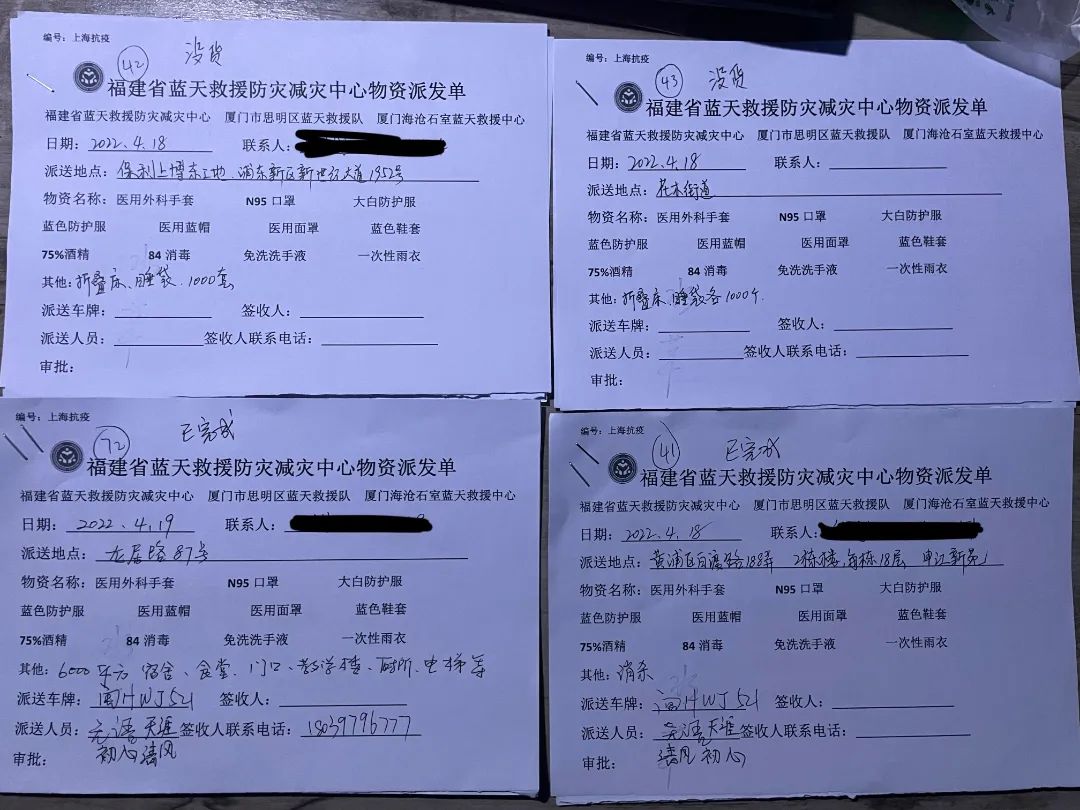 编号：上海抗疫
42 没货
福建省蓝天救援防灾减灾中心物资派发单
福建省蓝天救援防灾减灾中心 厦门市思明区蓝天救援队 厦门海沧石室蓝天救援中心
日期：2022.4.18 联系人：
派送地点：保利上博东工地.浦东新区新世纪大道1952号
物资名称：医用外科手套 N95口罩 大白防护服
蓝色防护服 医用蓝帽 医用面罩 蓝色鞋套
75%酒精 84消毒 免洗洗手液 一次性雨衣
其他：折叠床、睡袋.1000套
派送车牌： 签收人：
派送人员： 签收人联系电话：
审批：
编号：上海抗疫
43 没货
福建省蓝天救援防灾减灾中心物资派发单
福建省蓝天救援防灾减灾中心 厦门市思明区蓝天救援队 厦门海沧石室蓝天救援中心
日期：2022.4.18 联系人：
派送地点：花木街道
物资名称：医用外科手套 N95口罩 大白防护服
蓝色防护服 医用蓝帽 医用面罩 蓝色鞋套
75%酒精 84消毒 免洗洗手液 一次性雨衣
其他：折叠床、睡袋各1000个.
派送车牌： 签收人：
派送人员： 签收人联系电话：
审批：
编号：上海抗疫
72 已完成
福建省蓝天救援防灾减灾中心物资派发单
福建省蓝天救援防灾减灾中心 厦门市思明区蓝天救援队 厦门海沧石室蓝天救援中心
日期：2022.4.19 联系人：
派送地点：龙居路87号
物资名称：医用外科手套 N95口罩 大白防护服
蓝色防护服 医用蓝帽 医用面罩 蓝色鞋套
75%酒精 84消毒 免洗洗手液 一次性雨衣
其他：6000平方 宿舍、食堂、门口、教学楼、厕所、电梯等
派送车牌：闽HWJ521 签收人：
派送人员：天涯 签收人联系电话：18039796777
初心 清风
审批：
编号：上海抗疫
41 已完成
福建省蓝天救援防灾减灾中心物资派发单
福建省蓝天救援防灾减灾中心 厦门市思明区蓝天救援队 厦门海沧石室蓝天救援中心
日期：2022.4.18 联系人：
派送地点：黄浦区白渡路188弄 2栋楼，每栋18层 申江新苑
物资名称：医用外科手套 N95口罩 大白防护服
蓝色防护服 医用蓝帽 医用面罩 蓝色鞋套
75%酒精 84消毒 免洗洗手液 一次性雨衣
其他：消杀
派送车牌：闽HWJ521 签收人：
派送人员：天涯 签收人联系电话：
清风 初心
审批：